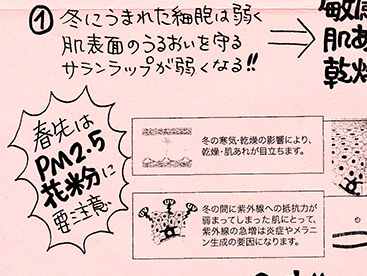 ① 冬にうまれた細胞は弱く
肌表面のうるおいを守る
サランラップが弱くなる!!
敏感
肌あ
乾燥
春先は
PM2.5
花粉に
要注意
冬の寒気・乾燥の影響により、
乾燥・肌あれが目立ちます。
冬の間に紫外線への抵抗力が
弱まってしまった肌にとって、
紫外線の急増は炎症やメラニ
ン生成の要因になります。